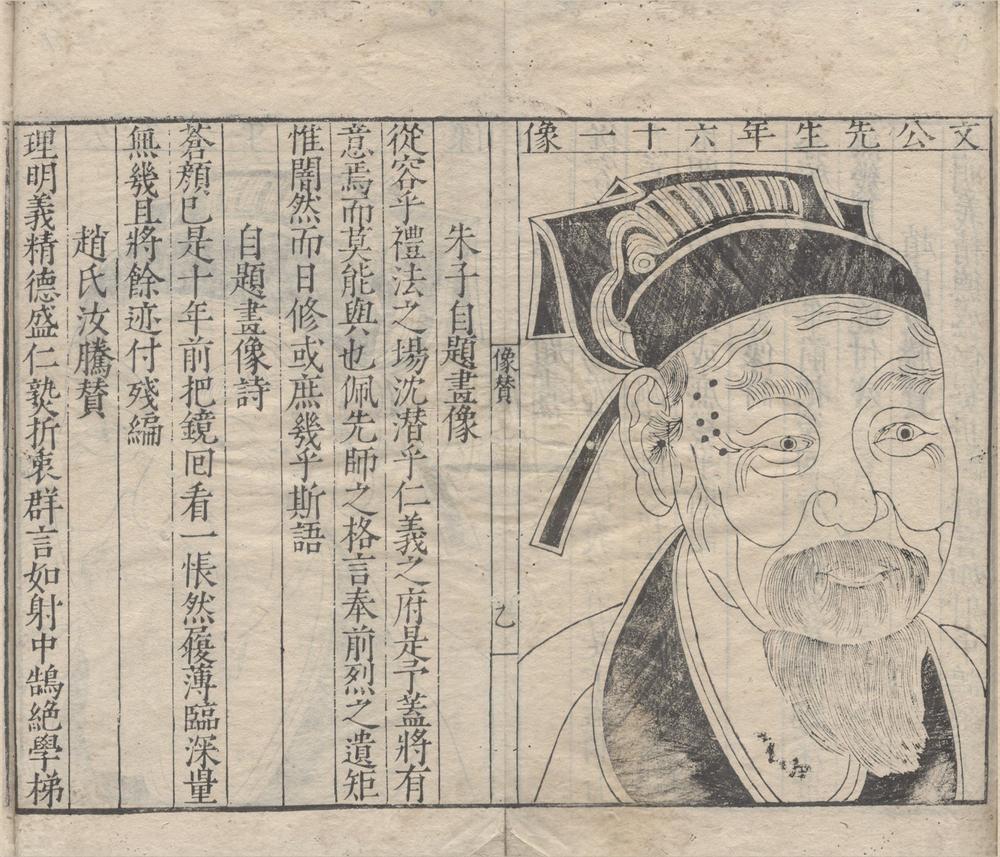 文公先生年六十一像
像贊
乙
朱子自題畫像
從容乎禮法之場沈潜乎仁義之府是予蓋將有
意焉而莫能與也佩先師之格言奉前烈之遺矩
惟闇然而日修或庶幾乎斯語
自題畫像詩
蒼顔已是十年前把鏡回看一悵然履薄臨深量
無幾且將餘迹付殘編
趙氏汝騰賛
理明義精德盛仁熟折衷群言如射中鵠絶學梯